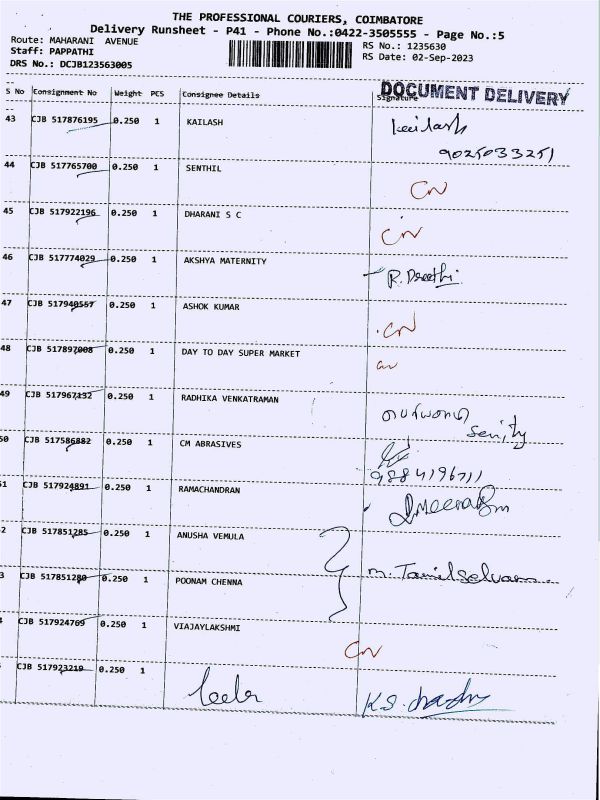 THE PROFESSIONAL COURIERS, COIMBATORE
Delivery Runsheet - P41 - Phone No.:0422-3505555 - Page No.:5
Route: MAHARANI AVENUE
RS No.: 1235630
Staff: PAPPATHI
RS Date: 02-Sep-2023
DRS No.: DCJB123563005
DOCUMENT DELIVERY
S No Consignment No Weight PCS Consignee Details Signature
43 CJB 517876195 0.250 1 KAILASH kailash
9025033251
44 CJB 517765700 0.250 1 SENTHIL CN
45 CJB 517922196 0.250 1 DHARANI S C CN
46 CJB 517774029 0.250 1 AKSHYA MATERNITY R. Preethi
47 CJB 517940557 0.250 1 ASHOK KUMAR CN
48 CJB 517897008 0.250 1 DAY TO DAY SUPER MARKET CN
49 CJB 517967132 0.250 1 RADHIKA VENKATRAMAN
50 CJB 517586882 0.250 1 CM ABRASIVES
9884196711
51 CJB 517924891 0.250 1 RAMACHANDRAN
2 CJB 517851285 0.250 1 ANUSHA VEMULA
3 CJB 517851280 0.250 1 POONAM CHENNA m. Tamilselvam
4 CJB 517924769 0.250 1 VIJAYLAKSHMI CN
CJB 517923219 0.250 1 leela K.S.